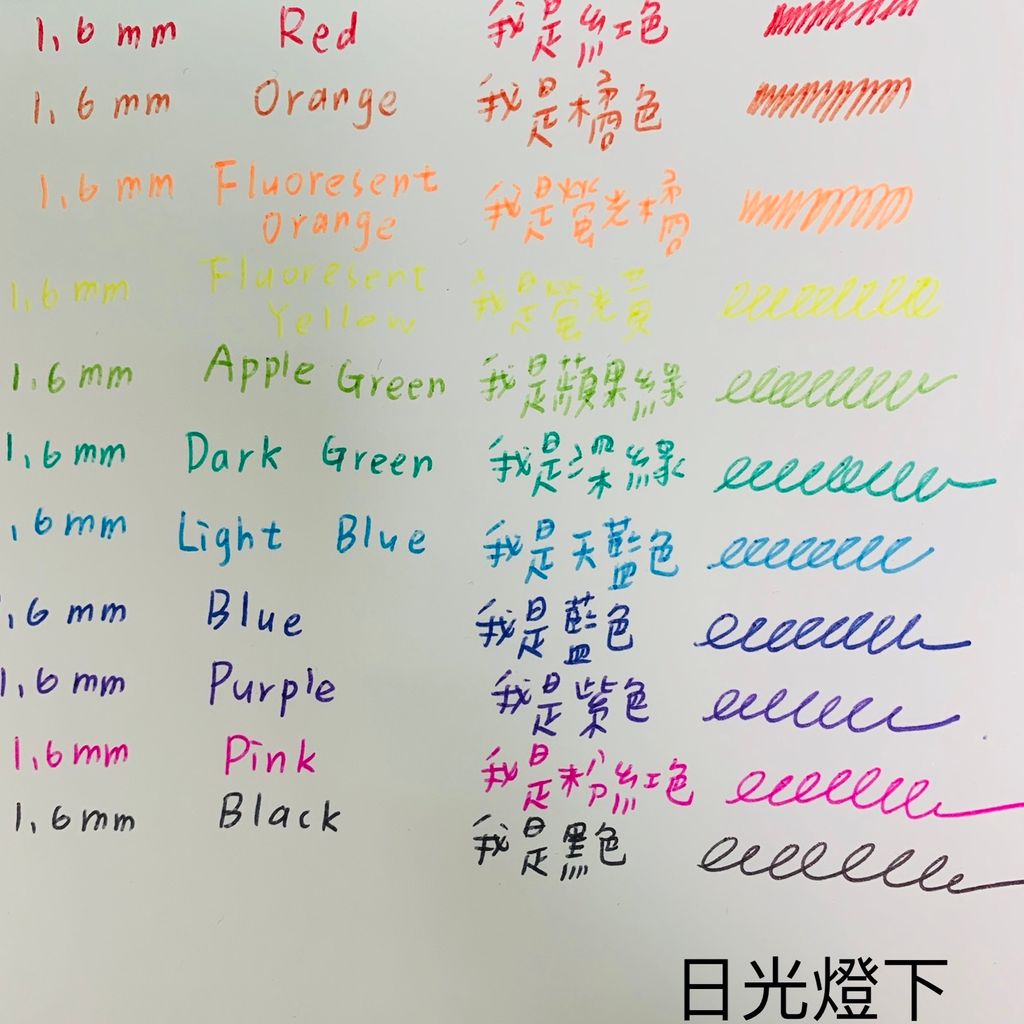 1.6 mm Red 我是紅色
1.6 mm Orange 我是橘色
1.6 mm Fluoresent Orange 我是螢光橘
1.6 mm Fluoresent Yellow 我是螢光黃
1.6 mm Apple Green 我是蘋果綠
1.6 mm Dark Green 我是深綠
.6 mm Light Blue 我是天藍色
1.6 mm Blue 我是藍色
1.6 mm Purple 我是紫色
1.6 mm Pink 我是粉紅色
1.6 mm Black 我是黑色
日光燈下